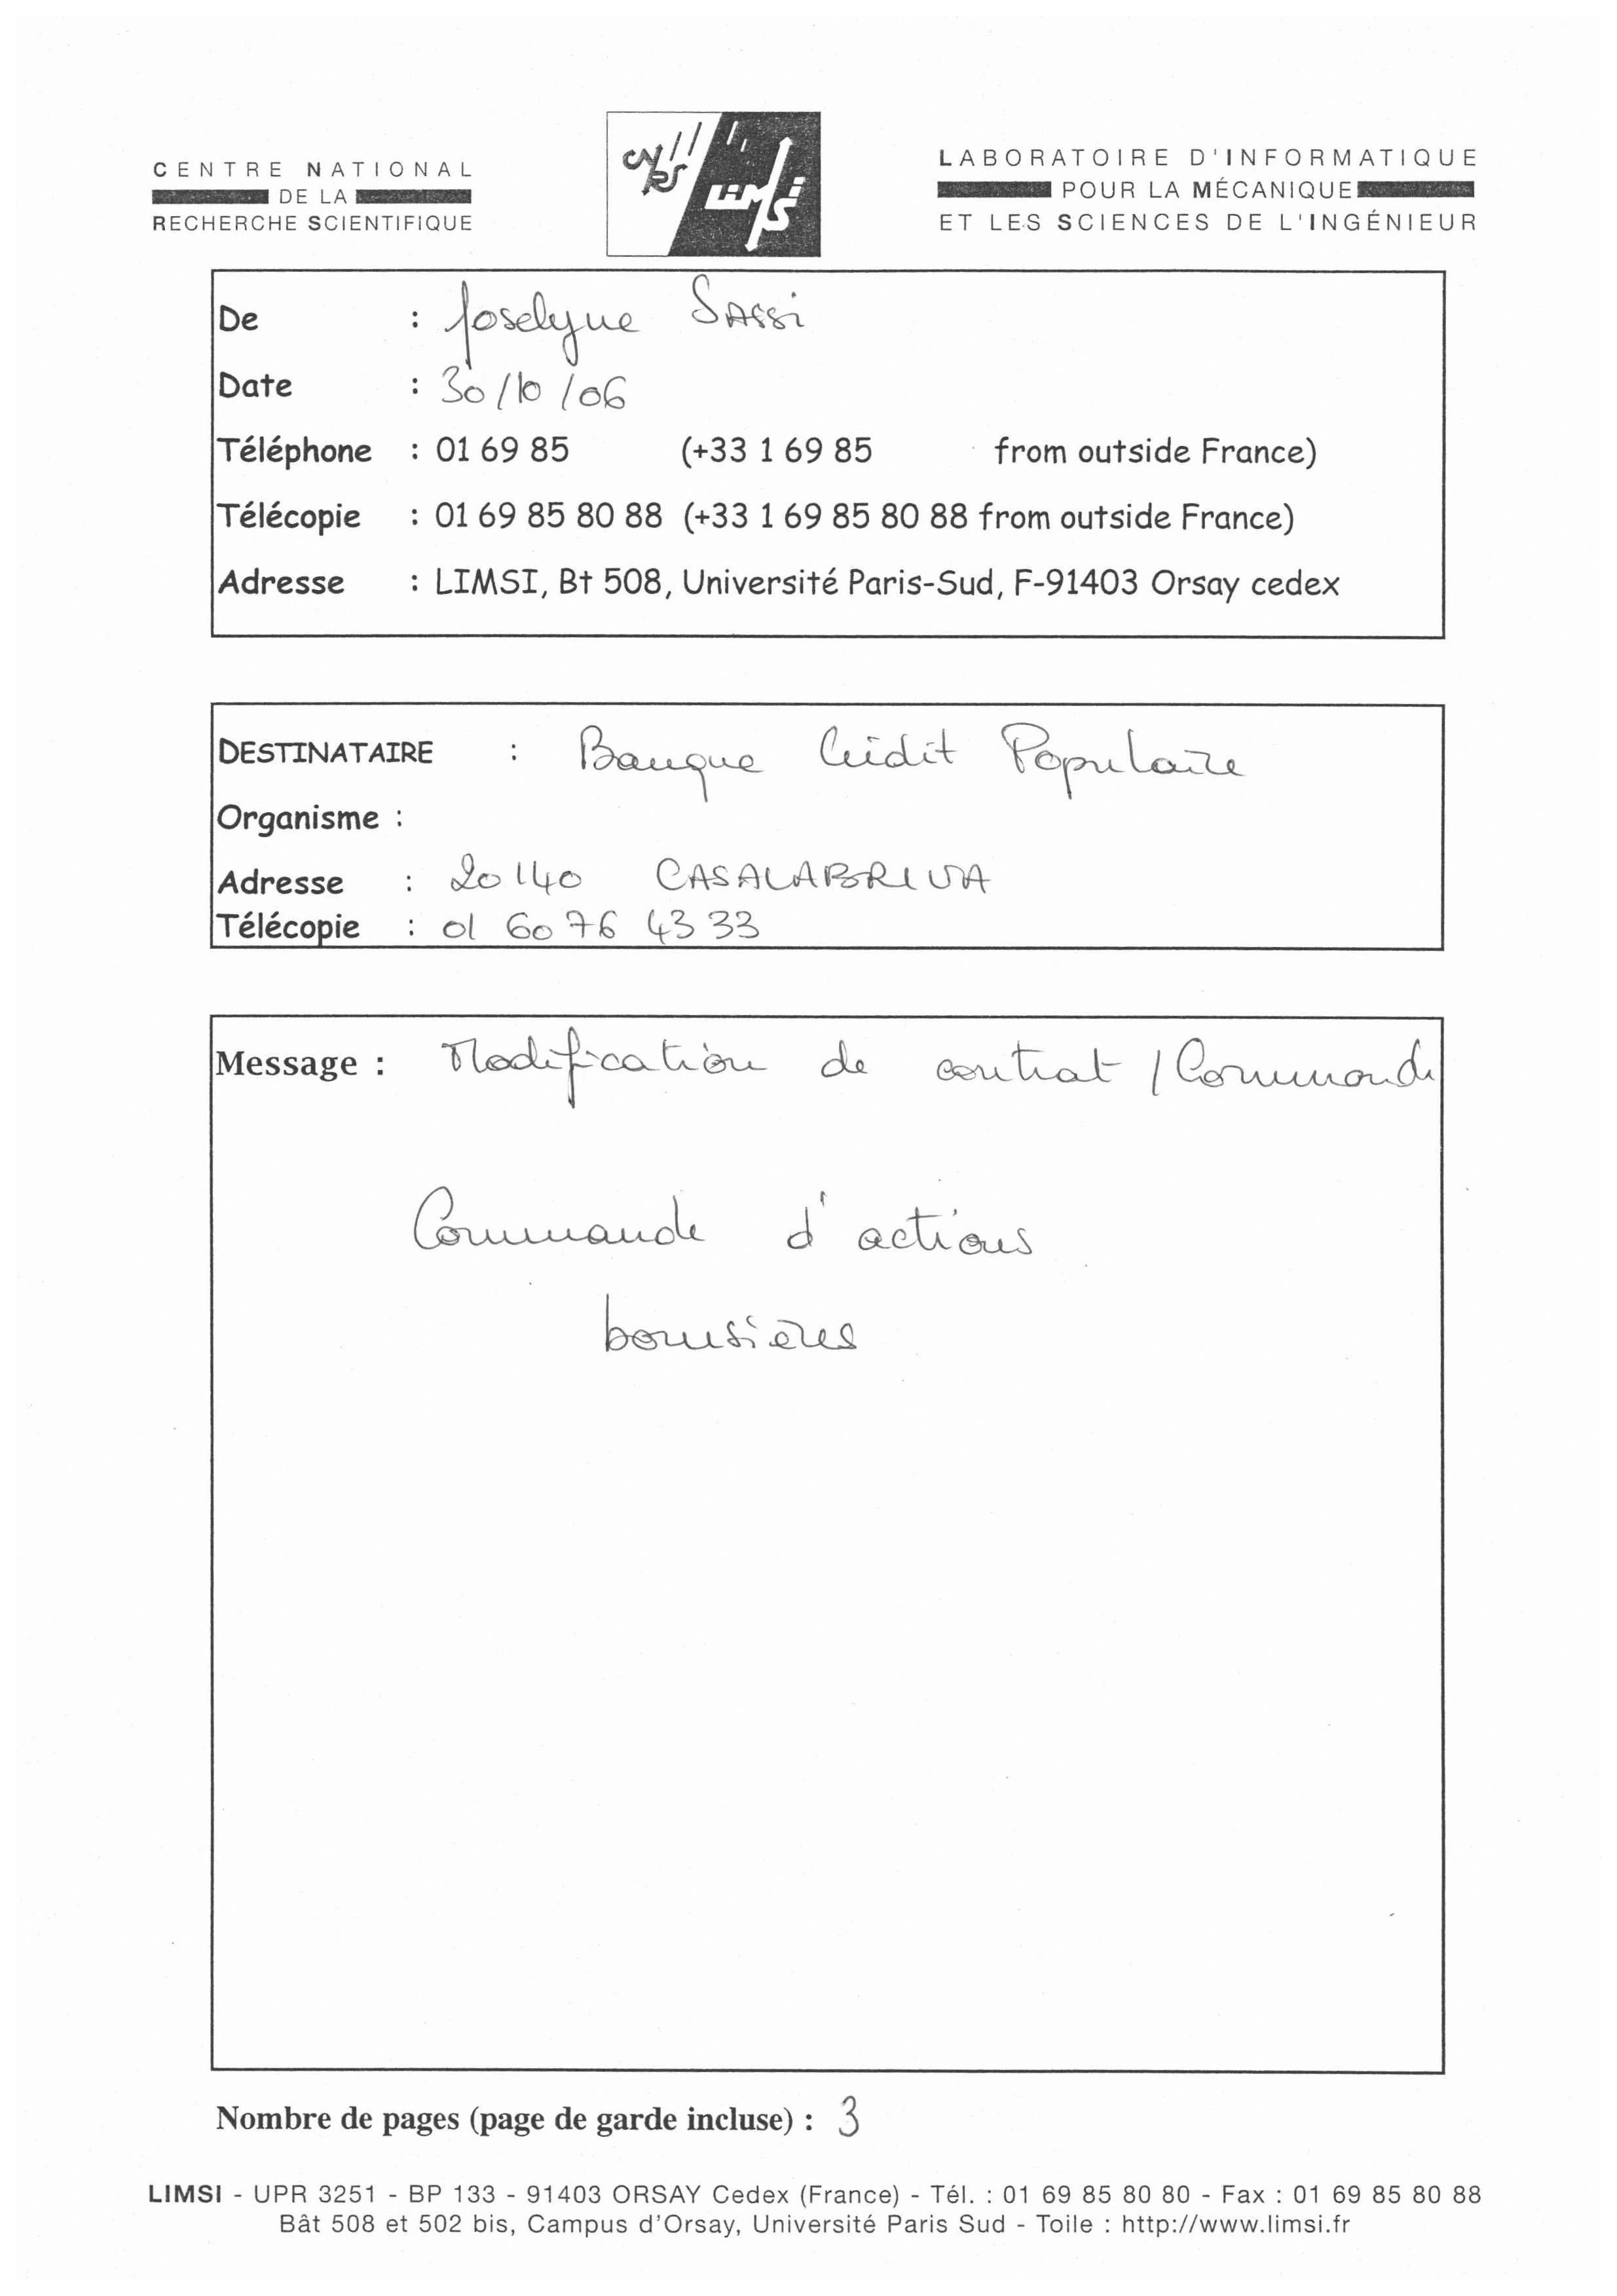 CENTRE NATIONAL
DE LA
RECHERCHE SCIENTIFIQUE
CNRS
LIMSI
LABORATOIRE D'INFORMATIQUE
POUR LA MÉCANIQUE
ET LES SCIENCES DE L'INGÉNIEUR
De : Joselyne SASSi
Date : 30/10/06
Téléphone : 01 69 85 (+33 1 69 85 from outside France)
Télécopie : 01 69 85 80 88 (+33 1 69 85 80 88 from outside France)
Adresse : LIMSI, Bt 508, Université Paris-Sud, F-91403 Orsay cedex
DESTINATAIRE : Banque Crédit Populaire
Organisme :
Adresse : 20140 CASALABRIVA
Télécopie : 01 60 76 43 33
Message : Modification de contrat / Commande
Commande d'actions
boursières
Nombre de pages (page de garde incluse) : 3
LIMSI - UPR 3251 - BP 133 - 91403 ORSAY Cedex (France) - Tél. : 01 69 85 80 80 - Fax : 01 69 85 80 88
Bât 508 et 502 bis, Campus d'Orsay, Université Paris Sud - Toile : http://www.limsi.fr